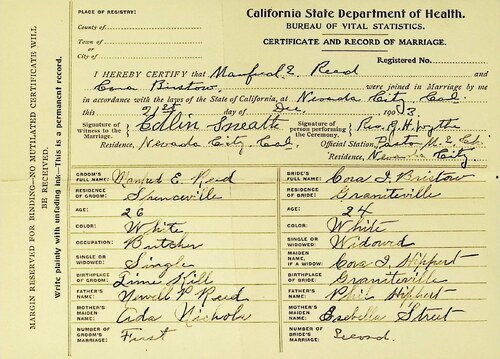 PLACE OF REGISTRY:
County of
Town of
or
City of
California State Department of Health.
BUREAU OF VITAL STATISTICS.
CERTIFICATE AND RECORD OF MARRIAGE.
Registered No.
I HEREBY CERTIFY that Manfred E. Reed and
Cora Bristow, were joined in Marriage by me
in accordance with the laws of the State of California, at Nevada City, Cal.
this 21st day of Dec. 1903
Signature of Witness to the Marriage, Edlin
Residence, Nevada City, Cal
Signature of person performing the Ceremony, Rev.
Official Station, Pastor M. E. Ch.
Residence, Nevada City
MARGIN RESERVED FOR BINDING—NO MUTILATED CERTIFICATE WILL BE RECEIVED.
Write plainly with unfading ink—This is a permanent record.
GROOM'S FULL NAME: Manfred E. Reed
RESIDENCE OF GROOM: Spenceville
AGE: 26
COLOR: White
OCCUPATION: Butcher
SINGLE OR WIDOWED: Single
BIRTHPLACE OF GROOM: Lime Kill
FATHER'S NAME: Newell P. Reed
MOTHER'S MAIDEN NAME: Ada Nichols
NUMBER OF GROOM'S MARRIAGE: First
BRIDE'S FULL NAME: Cora I. Bristow
RESIDENCE OF BRIDE: Graniteville
AGE: 24
COLOR: White
SINGLE OR WIDOWED: Widowd
MAIDEN NAME, IF A WIDOW: Cora I.
BIRTHPLACE OF BRIDE: Graniteville
FATHER'S NAME:
MOTHER'S MAIDEN NAME: Street
NUMBER OF BRIDE'S MARRIAGE: Second.